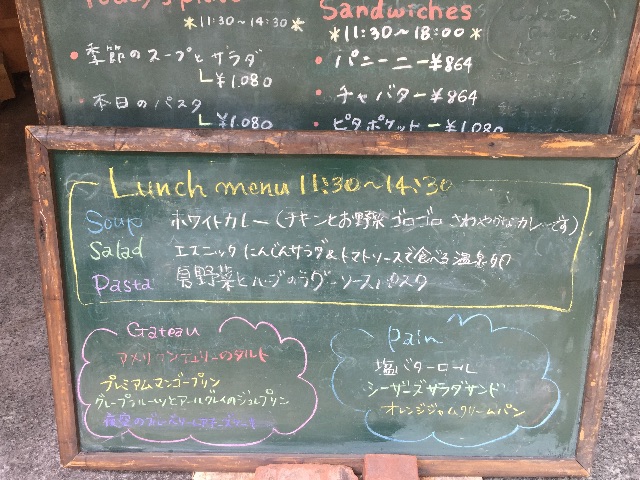 Today's plate
*11:30~14:30*
・季節のスープとサラダ
└¥1.080
・本日のパスタ
└¥1.080
Sandwiches
*11:30~18:00*
・パニーニー¥864
・チャバター¥864
・ピタポケットー¥1.080
Lunch menu 11:30~14:30
Soup ホワイトカレー(チキンとお野菜ゴロゴロ さわやかなカレーです)
Salad エスニックにんじんサラダ&トマトソースで食べる温泉卵
Pasta 夏野菜とハーブのラグーソースパスタ
Gateau
アメリカンチェリーのタルト
プレミアムマンゴープリン
グレープフルーツとアールグレイのジュレプリン
夜空の
Pain
塩バターロール
シーザーズサラダサンド
オレンジジャムクリームパン